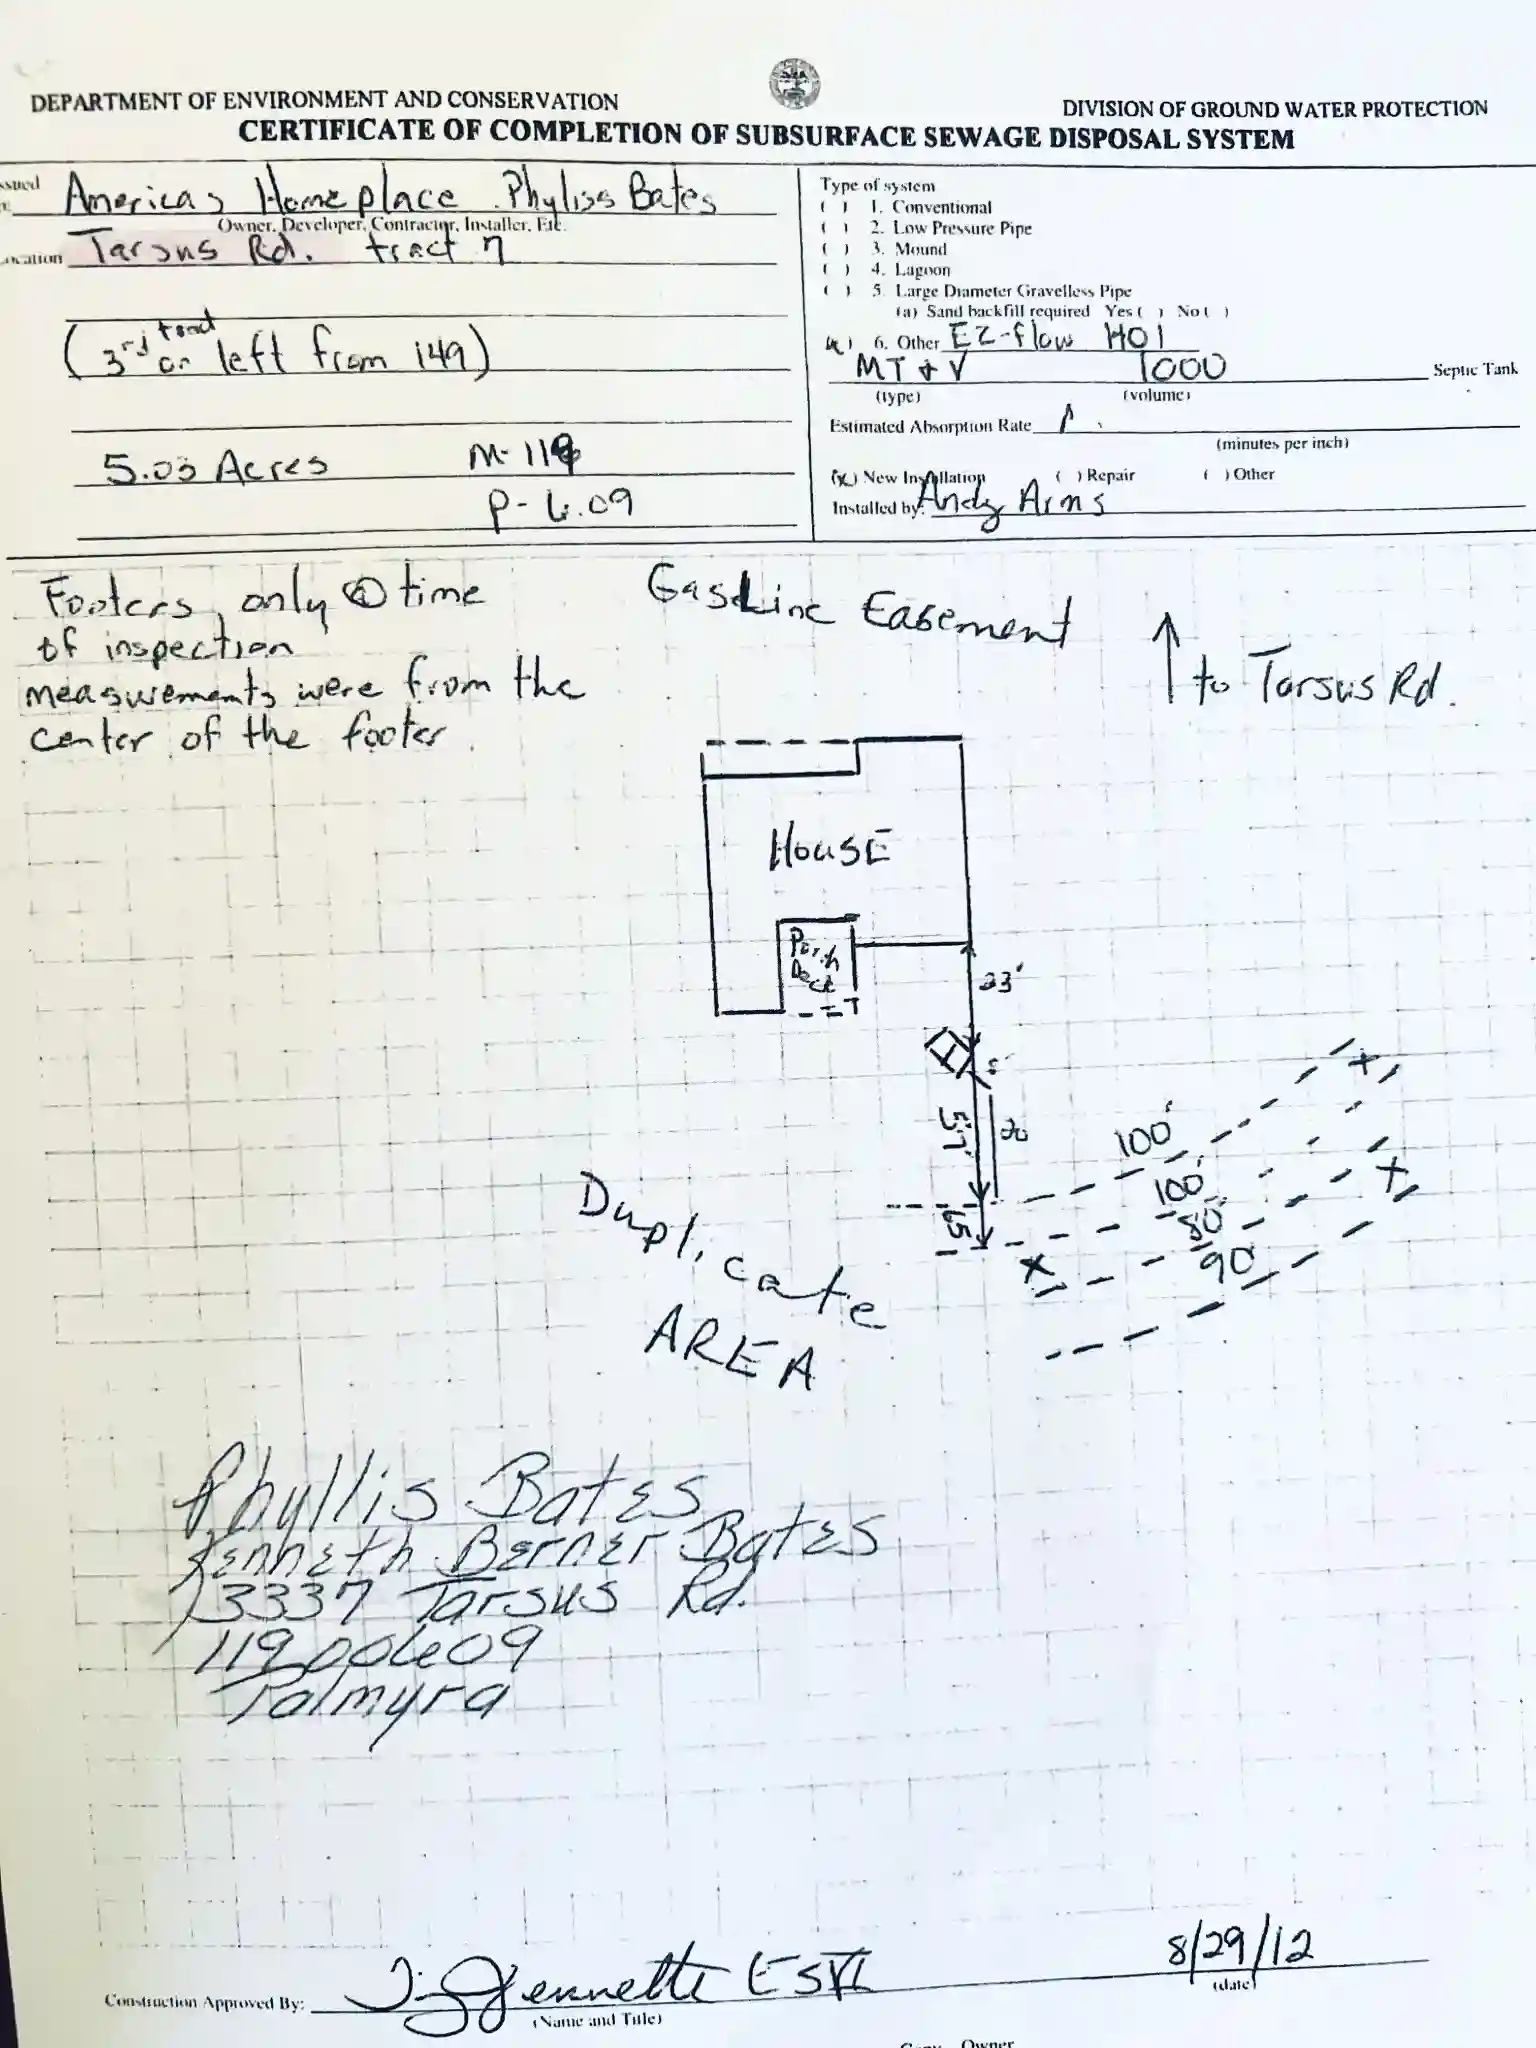 DEPARTMENT OF ENVIRONMENT AND CONSERVATION
DIVISION OF GROUND WATER PROTECTION
CERTIFICATE OF COMPLETION OF SUBSURFACE SEWAGE DISPOSAL SYSTEM
Americas Homeplace Phyliss Bates
Owner, Developer, Contractor, Installer, Etc.
Tarsus Rd. tract 7
(3rd tract on left from 149)
5.03 Acres M-119
P-6.09
Type of system
( ) 1. Conventional
( ) 2. Low Pressure Pipe
( ) 3. Mound
( ) 4. Lagoon
( ) 5. Large Diameter Gravelless Pipe
(a) Sand backfill required Yes ( ) No ( )
6. Other EZ-flow
1000 Septic Tank
(type) (volume)
Estimated Absorption Rate
(minutes per inch)
(x) New Installation ( ) Repair ( ) Other
Installed by: Andy Arms
Footers only @ time
of inspection
measurements were from the
center of the footer
Gasline Easement
to Tarsus Rd.
HOUSE
Porch
Deck
23'
57'
20
65
100'
100'
80'
90'
Duplicate
AREA
Phyllis Bates
Kenneth Berner Bates
3337 Tarsus Rd.
119 00609
Palmyra
Construction Approved By: ESVI 8/29/12
(Name and Title) (date)
Owner